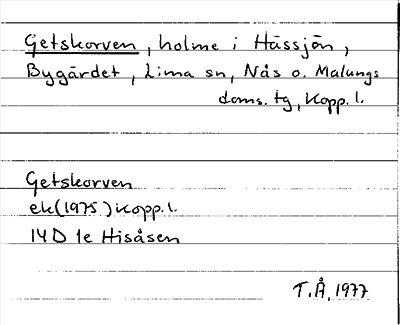 Getskorven, holme i Hässjön,
Bygärdet, Lima sn, Nås o. Malungs
doms. tg, Kopp. l.
Getskorven
ek (1975) Kopp. l.
14D 1e Hisåsen
T.Å, 1977